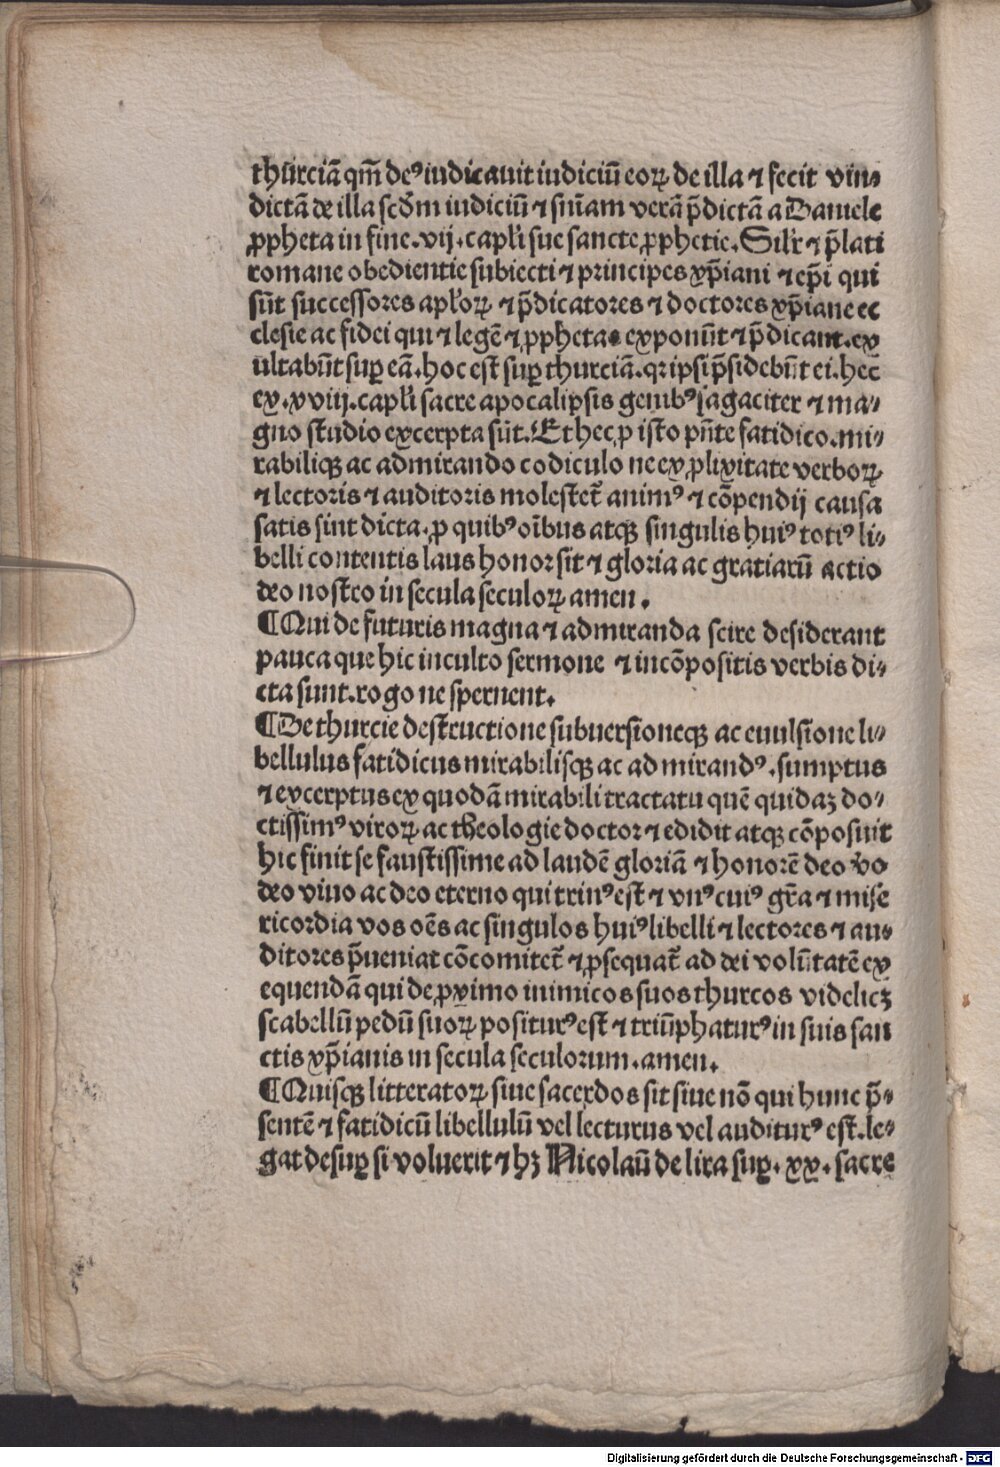 thurciã qm̃ deꝰ iudicauit iudiciũ eoꝝ de illa ⁊ fecit vin⸗
dictã de illa scđm iudiciũ ⁊ sniam verã p̃dictã a Daniele
ꝓpheta in fine .vij. capl̓i sue sancte ꝓphetie. Silr̓ ⁊ p̃lati
romane obedientie subiecti ⁊ principes xp̃iani ⁊ ep̃i qui
sũt successores apl̓oꝝ ⁊ p̃dicatores ⁊ doctores xp̃iane ec
clesie ac fidei qui ⁊ legẽ ⁊ ꝓphetas exponũt ⁊ p̃dicant. ex
ultabũt suꝑ eã. hoc est suꝑ thurciã. qꝛ ipsi p̃sidebũt ei. hec̃
ex .xviij. capl̓i sacre apocalipsis gemibꝰ sagaciter ⁊ ma⸗
gno studio excerpta sũt. Et hec ꝓ isto pñte fatidico. mi⸗
rabiliqꝫ ac admirando codiculo ne ex ꝓlixitate verboꝝ
⁊ lectoris ⁊ auditoris molestet̃ animꝰ ⁊ cõpendij causa
satis sint dicta. ꝓ quibꝰ oĩbus atqꝫ singulis huiꝰ totiꝰ li⸗
belli contentis laus honor sit ⁊ gloria ac gratiarũ actio
deo nostro in secula seculoꝝ amen.
¶Qui de futuris magna ⁊ admiranda scire desiderant
pauca que hic inculto sermone ⁊ incõpositis verbis di⸗
cta sunt. rogo ne spernent.
¶De thurcie destructione subuersioneqꝫ ac euulsione li⸗
bellulus fatidicus mirabilisqꝫ ac admirandꝰ. sumptus
⁊ excerptus ex quodã mirabili tractatu quẽ quidaꝫ do⸗
ctissimꝰ viroꝝ ac theologie doctor ⁊ edidit atqꝫ cõposuit
hic finit se faustissime ad laudẽ gloriã ⁊ honorẽ deo vo
deo viuo ac deo eterno qui trinꝰ est ⁊ vnꝰ cuiꝰ gr̃a ⁊ mise
ricordia vos oẽs ac singulos huiꝰ libelli ⁊ lectores ⁊ au⸗
ditores p̃ueniat cõcomitet̃ ⁊ ꝓsequat̃ ad dei volũtatẽ ex
equendã qui de ꝓximo inimicos suos thurcos videlicꝫ
scabellũ pedũ suoꝝ positurꝰ est ⁊ triũphaturꝰ in suis san
ctis xp̃ianis in secula seculorum. amen.
¶Quisqꝫ litteratoꝝ siue sacerdos sit siue nõ qui hunc p̃⸗
sentẽ ⁊ fatidicũ libellulũ vel lecturus vel auditurꝰ est. le⸗
gat desuꝑ si voluerit ⁊ hꝫ Nicolaũ de lira suꝑ .xx. sacre
Digitalisierung gefördert durch die Deutsche Forschungsgemeinschaft - DFG